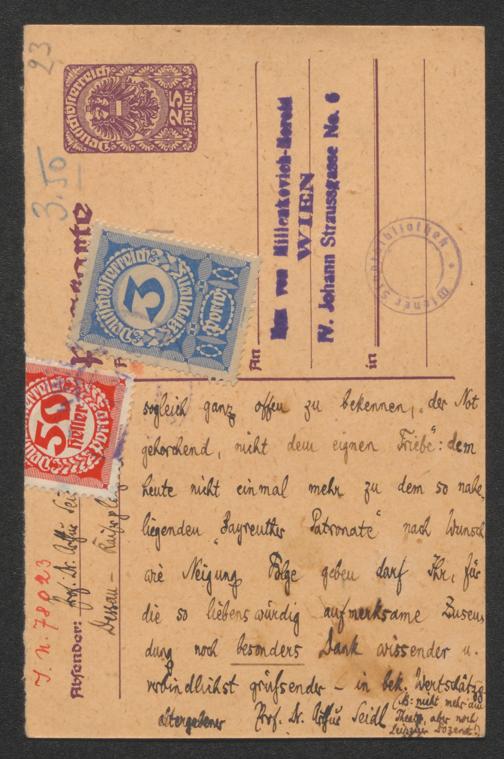 23
3.50
Deutschösterreich
25
Heller
3
Deutschösterreich
Porto
50
Heller
Porto
Max von Millenkovich-Morold
WIEN
IV. Johann Straussgasse No. 6
An
in
Wiener Stadtbibliothek
J. N. 78023
Absender: Prof. Dr. Arthur Seidl
Dessau –
sogleich ganz offen zu bekennen, „der Not
gehorchend, nicht dem eignen Triebe“: dem
heute nicht einmal mehr zu dem so nahe
liegenden „Bayreuther Patronate“ nach Wunsch
wie Neigung Folge geben darf Ihr, für
die so liebenswürdig aufmerksame Zusen
dung noch besonders Dank wissender u.
verbindlichst grüßender – in bek. Wertschätzg
ergebener Prof. Dr. Arthur Seidl
(NB: nicht mehr am
Theater, aber noch
Leipziger Dozent!)